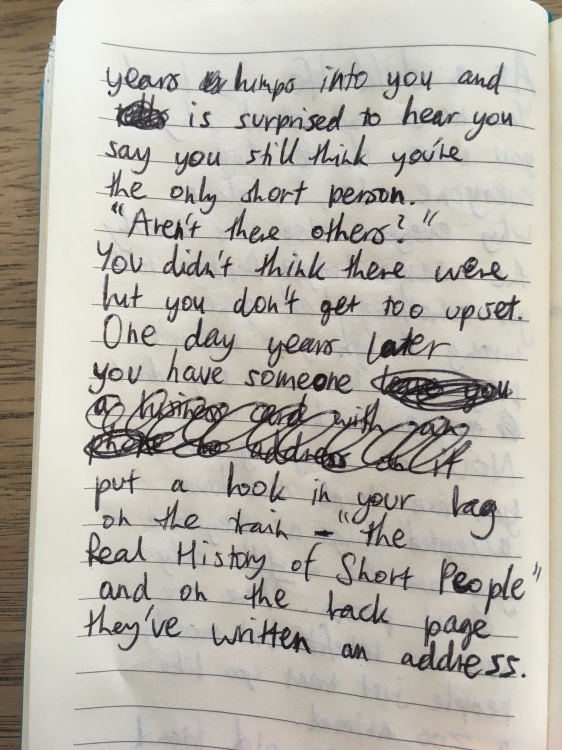 years bumps into you and
is surprised to hear you
say you still think you're
the only short person.
"Aren't there others?"
You didn't think there were
but you don't get too upset.
One day years later
you have someone leave you
a business card with an
phone no address on it
put a book in your bag
on the train - "the
Real History of Short People"
and on the back page
they've written an address.